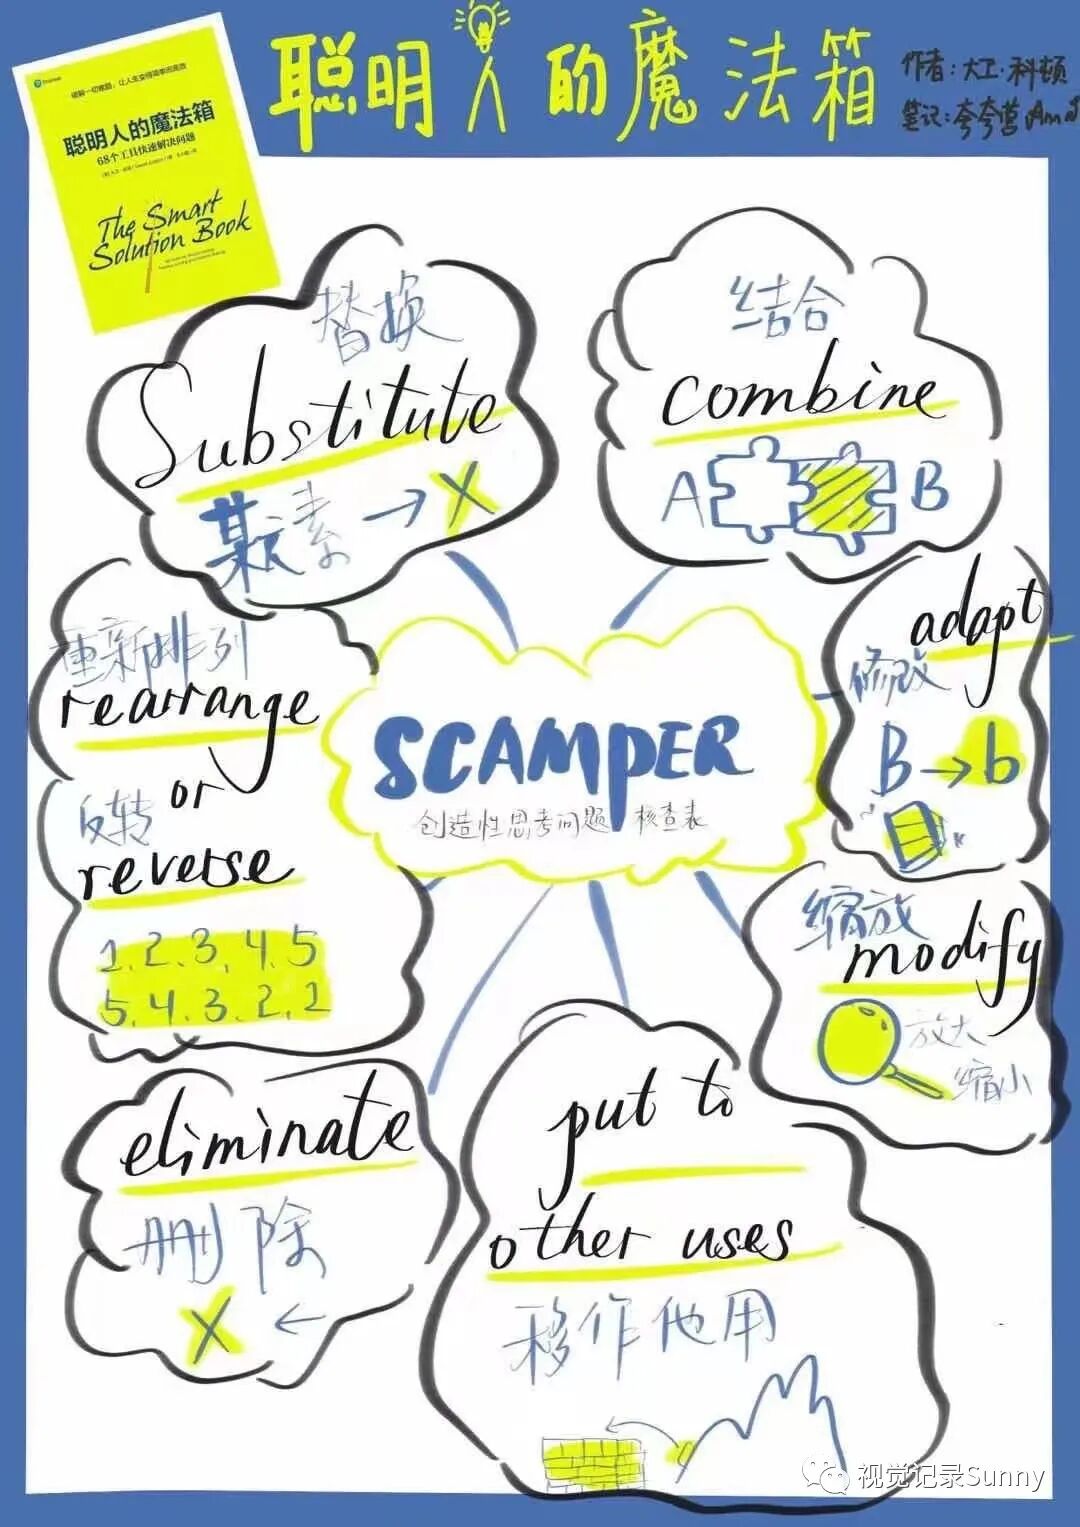 聪明人的魔法箱
作者:大卫·科顿
笔记:夸夸营
Pearson
破解一切难题,让人生变得简单而高效
聪明人的魔法箱
68个工具快速解决问题
The Smart
Solution Book
替换
Substitute
某元素→X
结合
combine
A B
adapt
修改
B→b
重新排列
rearrange
or
反转
reverse
1、2、3、4、5
5、4、3、2、1
SCAMPER
创造性思考问题 核查表
缩放
modify
放大
缩小
eliminate
删除
X←
put to
other uses
移作他用
视觉记录Sunny